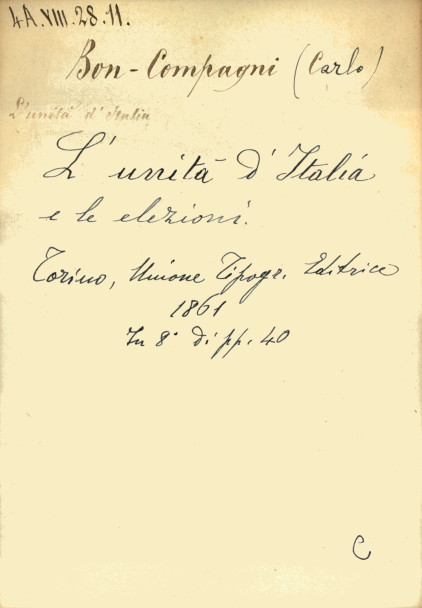 4A.XIII.28.11.
Bon-Compagni (Carlo)
L'unità d'Italia
L'unità d'Italia
e le elezioni.
Torino, Unione Tipogr. Editrice
1861
In 8° di pp. 40
C